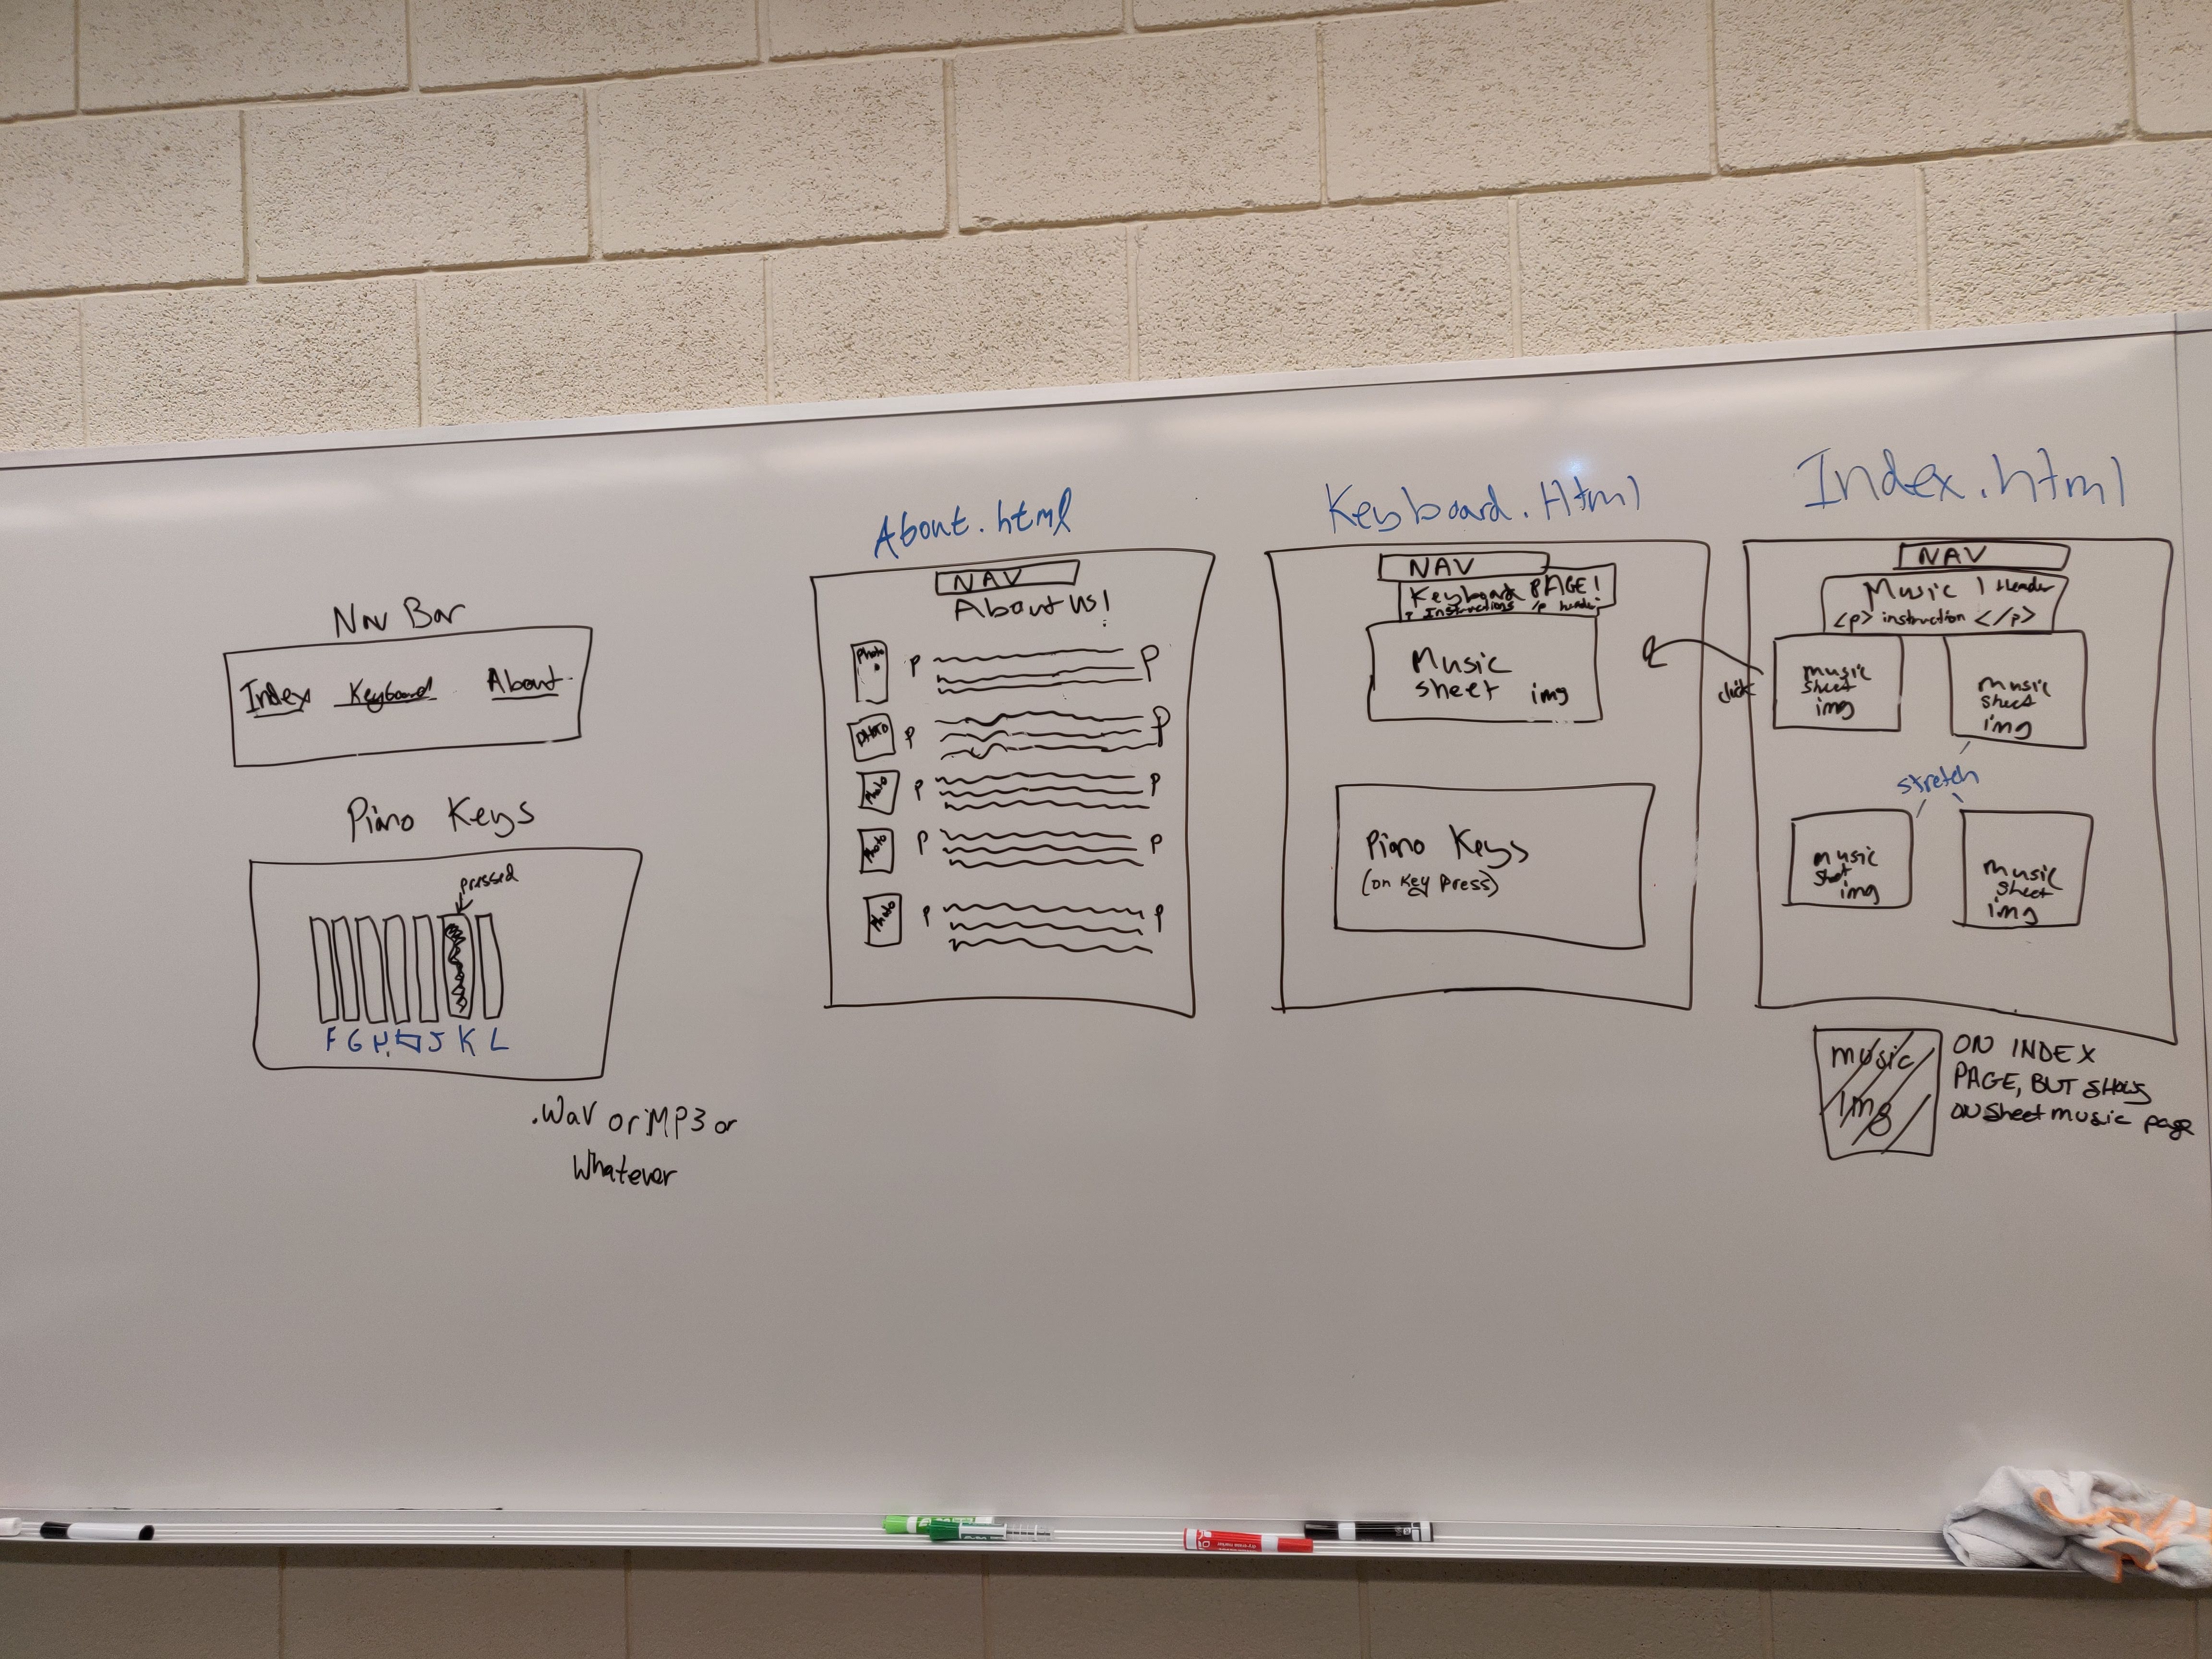 Nav Bar
Index Keyboard About
Piano Keys
pressed
F G H J K L
.Wav or MP3 or
Whatever
About.html
NAV
About us!
Photo P P
PHOTO P P
Photo P P
Photo P P
Photo P P
Keyboard.Html
NAV
Keyboard PAGE!
Instructions /p header
Music
sheet img
Piano Keys
(on Key press)
Index.html
NAV
Music | Header
<p> instruction </p>
click
music
sheet
img
music
sheet
img
stretch
music
sheet
img
music
sheet
img
music
img
ON INDEX
PAGE, BUT SHOWS
ON Sheet music page